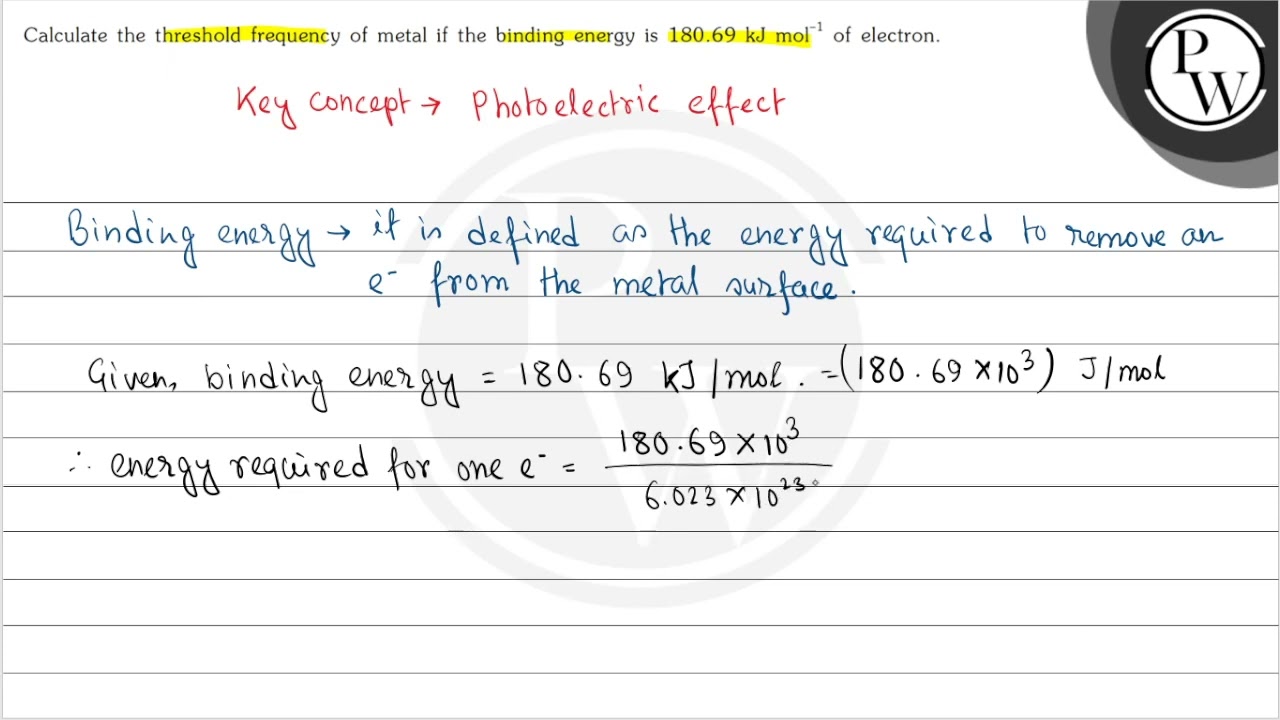 Calculate the threshold frequency of metal if the binding energy is 180.69 kJ mol⁻¹ of electron.
P
W
Key concept → Photoelectric effect
Binding energy → it is defined as the energy required to remove an
e⁻ from the metal surface.
Given, binding energy = 180.69 kJ/mol. = (180.69 × 10³) J/mol
∴ energy required for one e⁻ = 180.69 × 10³
6.023 × 10²³